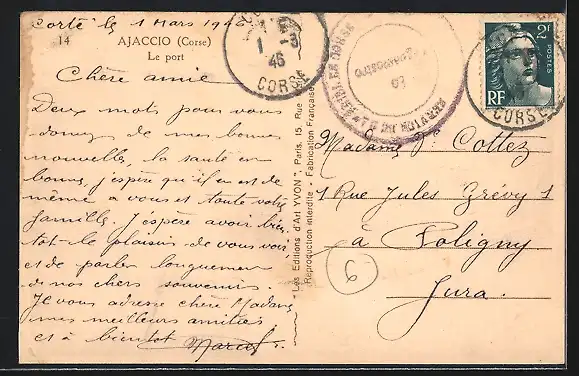 Corté le 1 Mars 1946
14 AJACCIO (Corse)
Le port
Chère amie
Deux mots pour vous
donner de mes bonnes
nouvelles, la santé est
bonne, j'espère qu'il en est de
même a vous et toute votre
famille. J'éspère avoir bien-
tot le plaisir de vous voir,
et de parler longuement
de nos chers souvenirs.
Je vous adresse chère Madame
mes meilleurs amitiés
et à bientot Marcel
"Les Editions d'Art YVON", Paris, 15, Rue
Reproduction interdite - Fabrication Française
1 -3
46
CORSE
2F
POSTES
RF
CORSE
Madame Cottez
1 Rue Jules Grévy 1
à Poligny
Jura.
6